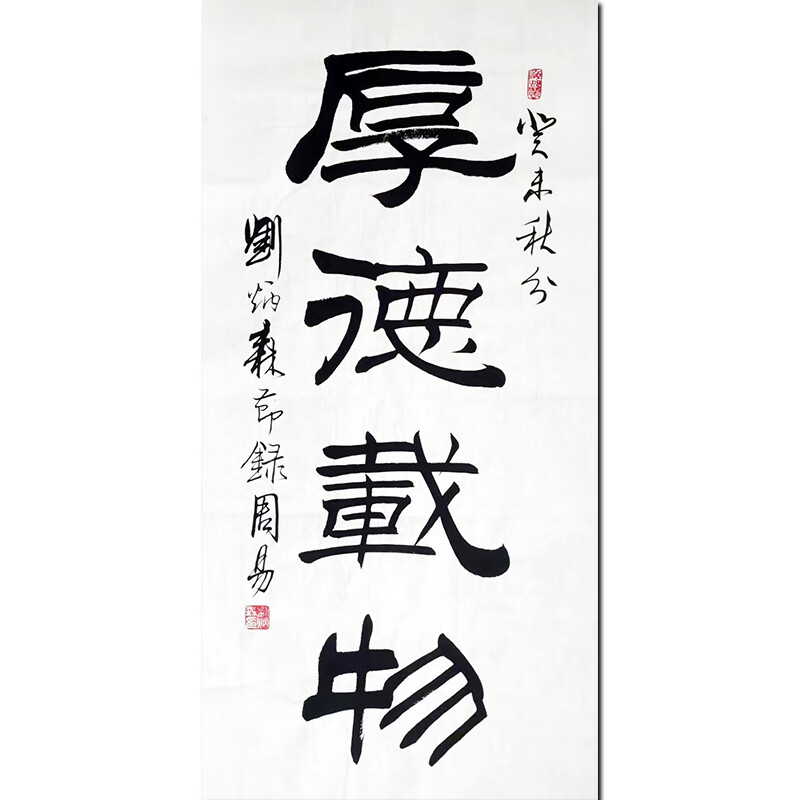 癸未秋分
厚德載物
劉炳森節録周易